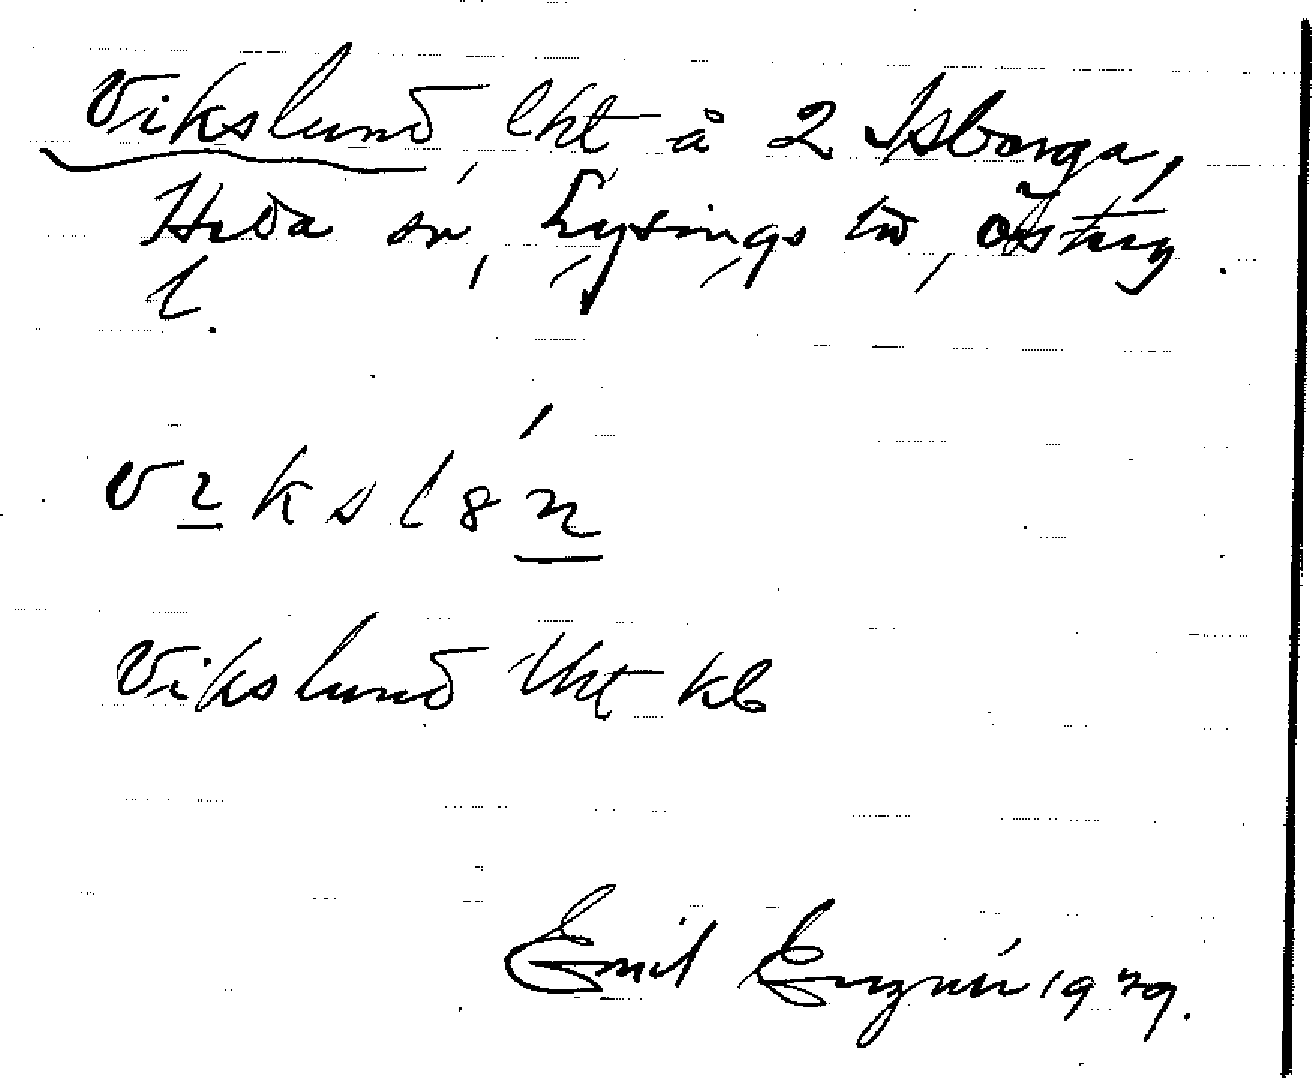 Vikslund, lht å 2 Isberga,
Heda sn, Lysings hd, Österg
l.
v ı k s l 8 n
Vikslund lht kb
Emil 1929.